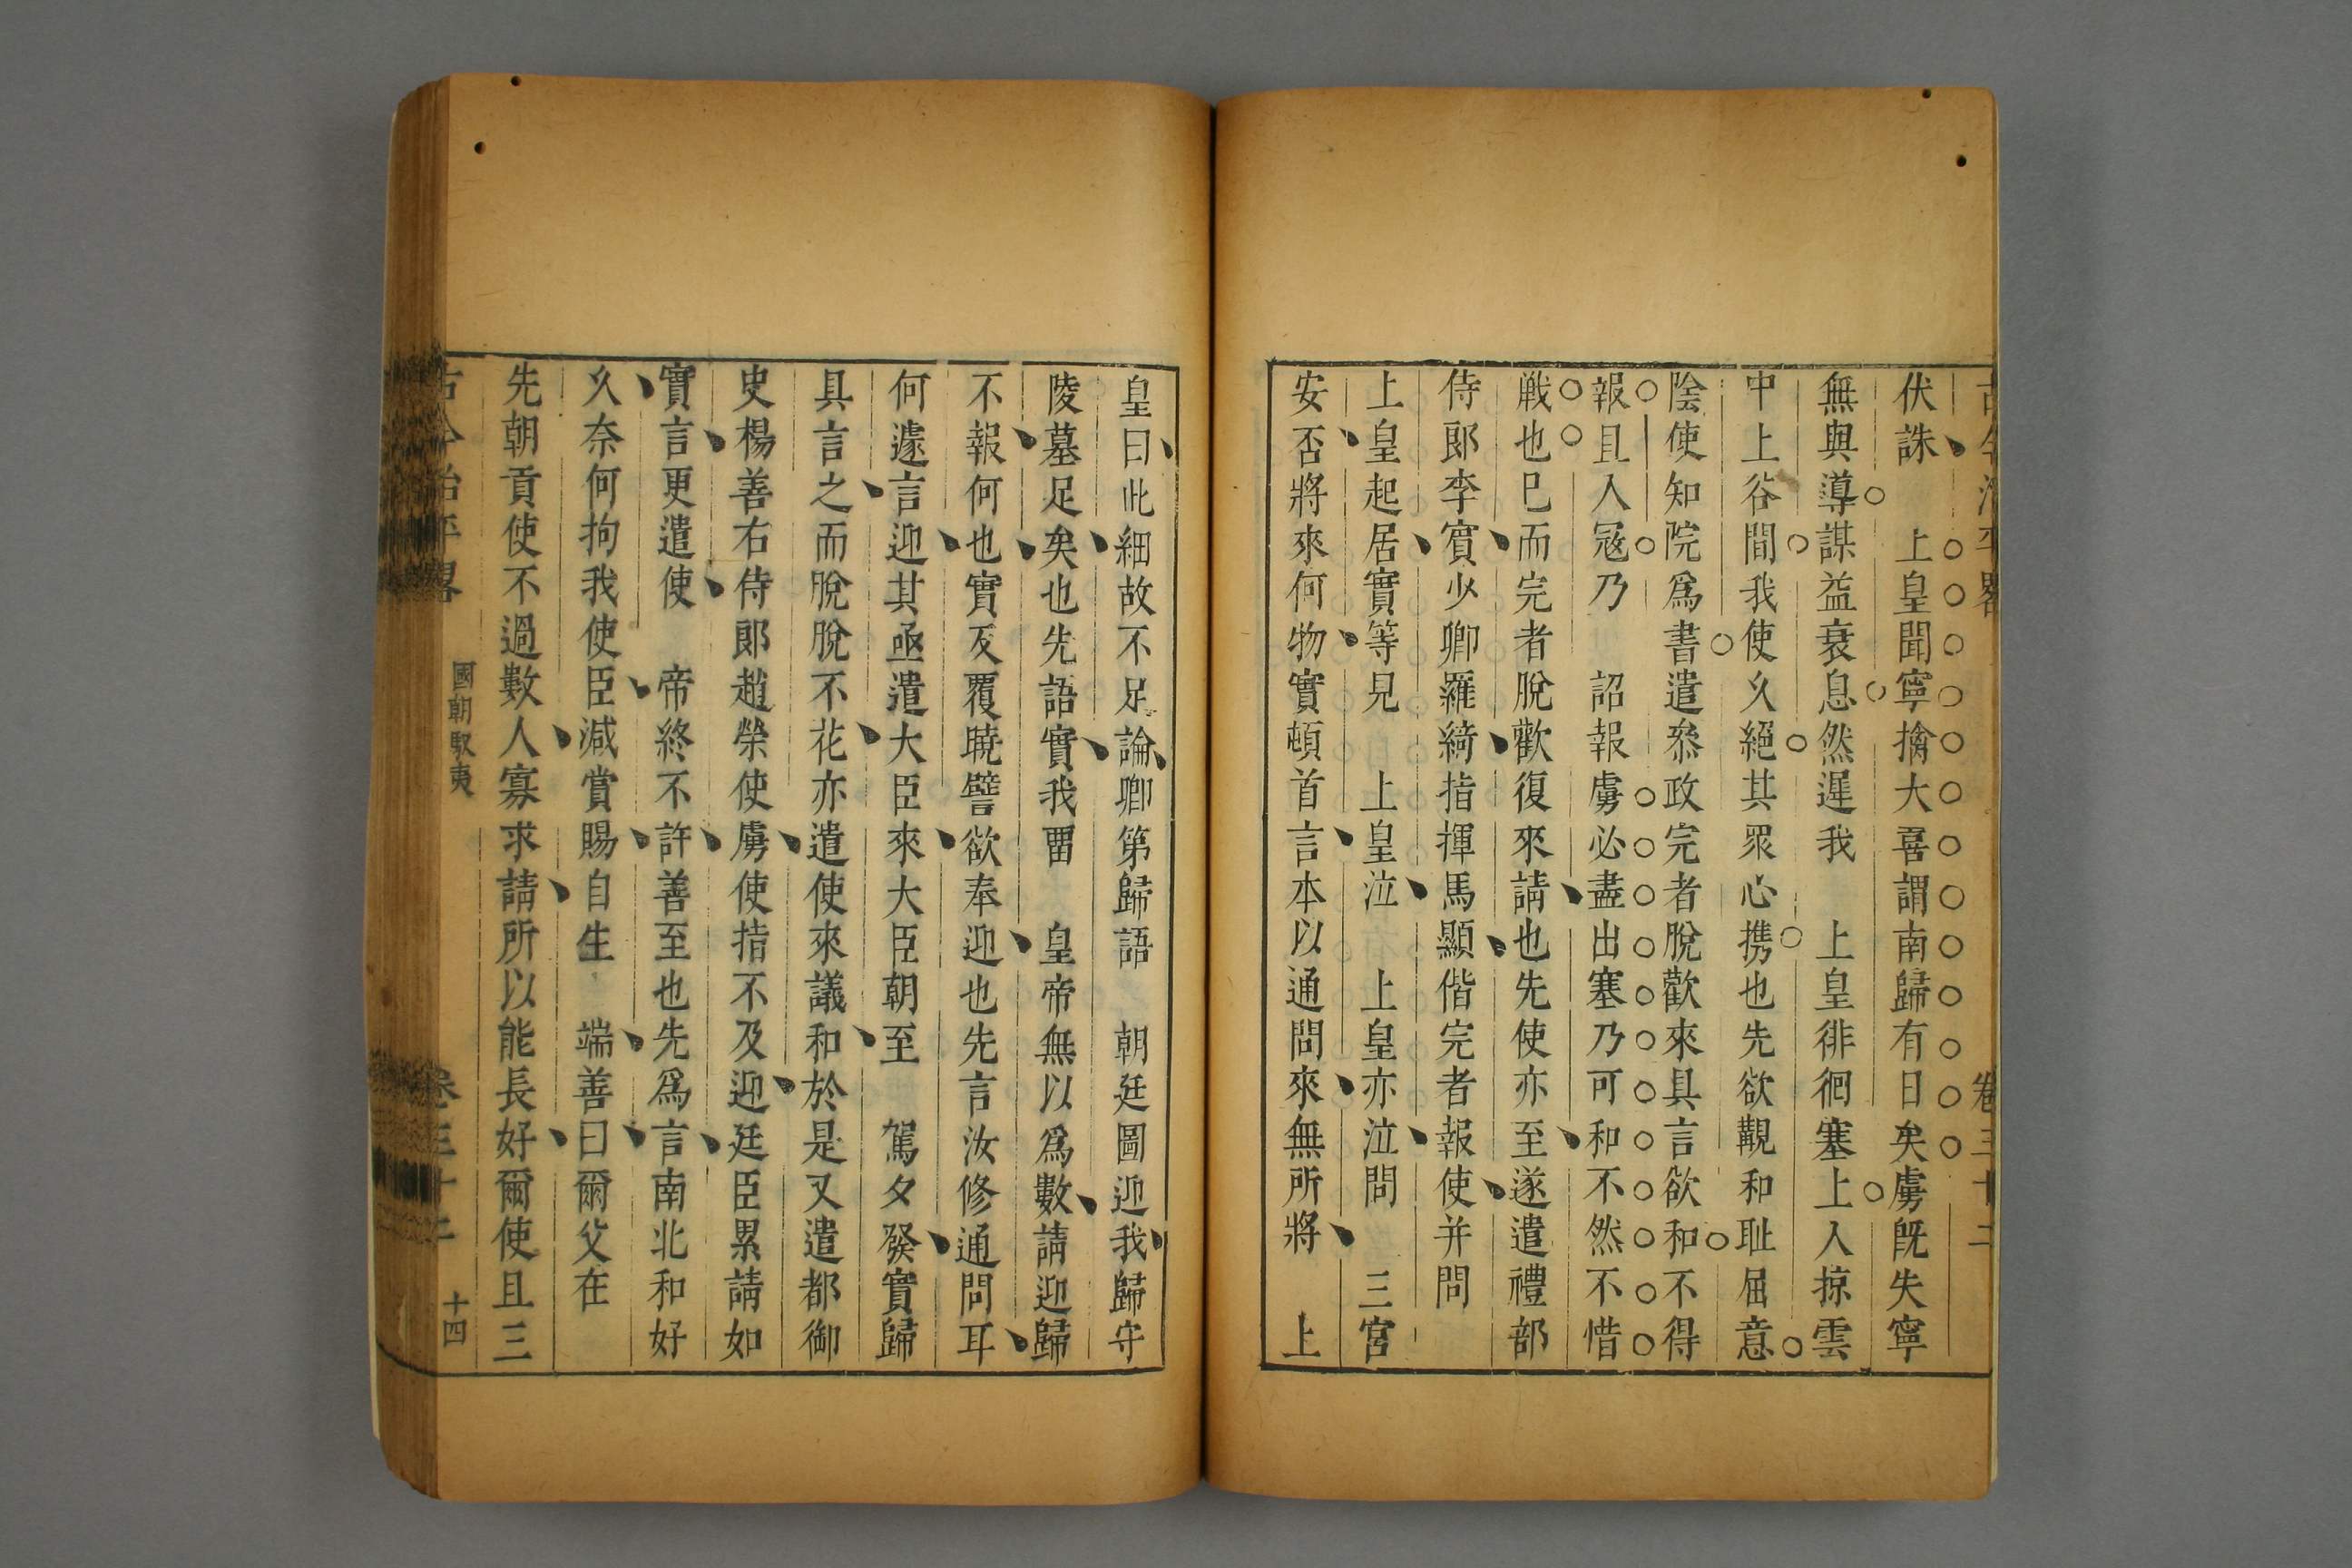 古今治平畧 卷三十二
伏誅 上皇聞寧擒大喜謂南歸有日矣虜旣失寧
無與導謀益衰息然遲我 上皇徘徊塞上入掠雲
中上谷間我使久絕其眾心携也先欲觀和耻屈意
陰使知院爲書遣叅政完者脫歡來具言欲和不得
報且入冦乃 詔報虜必盡出塞乃可和不然不惜
戰也巳而完者脫歡復來請也先使亦至遂遣禮部
侍郎李實少卿羅綺指揮馬顯偕完者報使并問
上皇起居實等見 上皇泣 上皇亦泣問 三宮
安否將來何物實頓首言本以通問來無所將 上
皇曰此細故不足論卿第歸語 朝廷圖迎我歸守
陵墓足矣也先語實我畱 皇帝無以爲數請迎歸
不報何也實反覆曉譬欲奉迎也先言汝修通問耳
何遽言迎其亟遣大臣來大臣朝至 駕夕發實歸
具言之而脫脫不花亦遣使來議和於是又遣都御
史楊善右侍郎趙榮使虜使指不及迎廷臣累請如
實言更遣使 帝終不許善至也先爲言南北和好
久奈何拘我使臣減賞賜自生 端善曰爾父在
先朝貢使不過數人寡求請所以能長好爾使且三
古今治平畧 國朝馭夷 卷三十二 十四